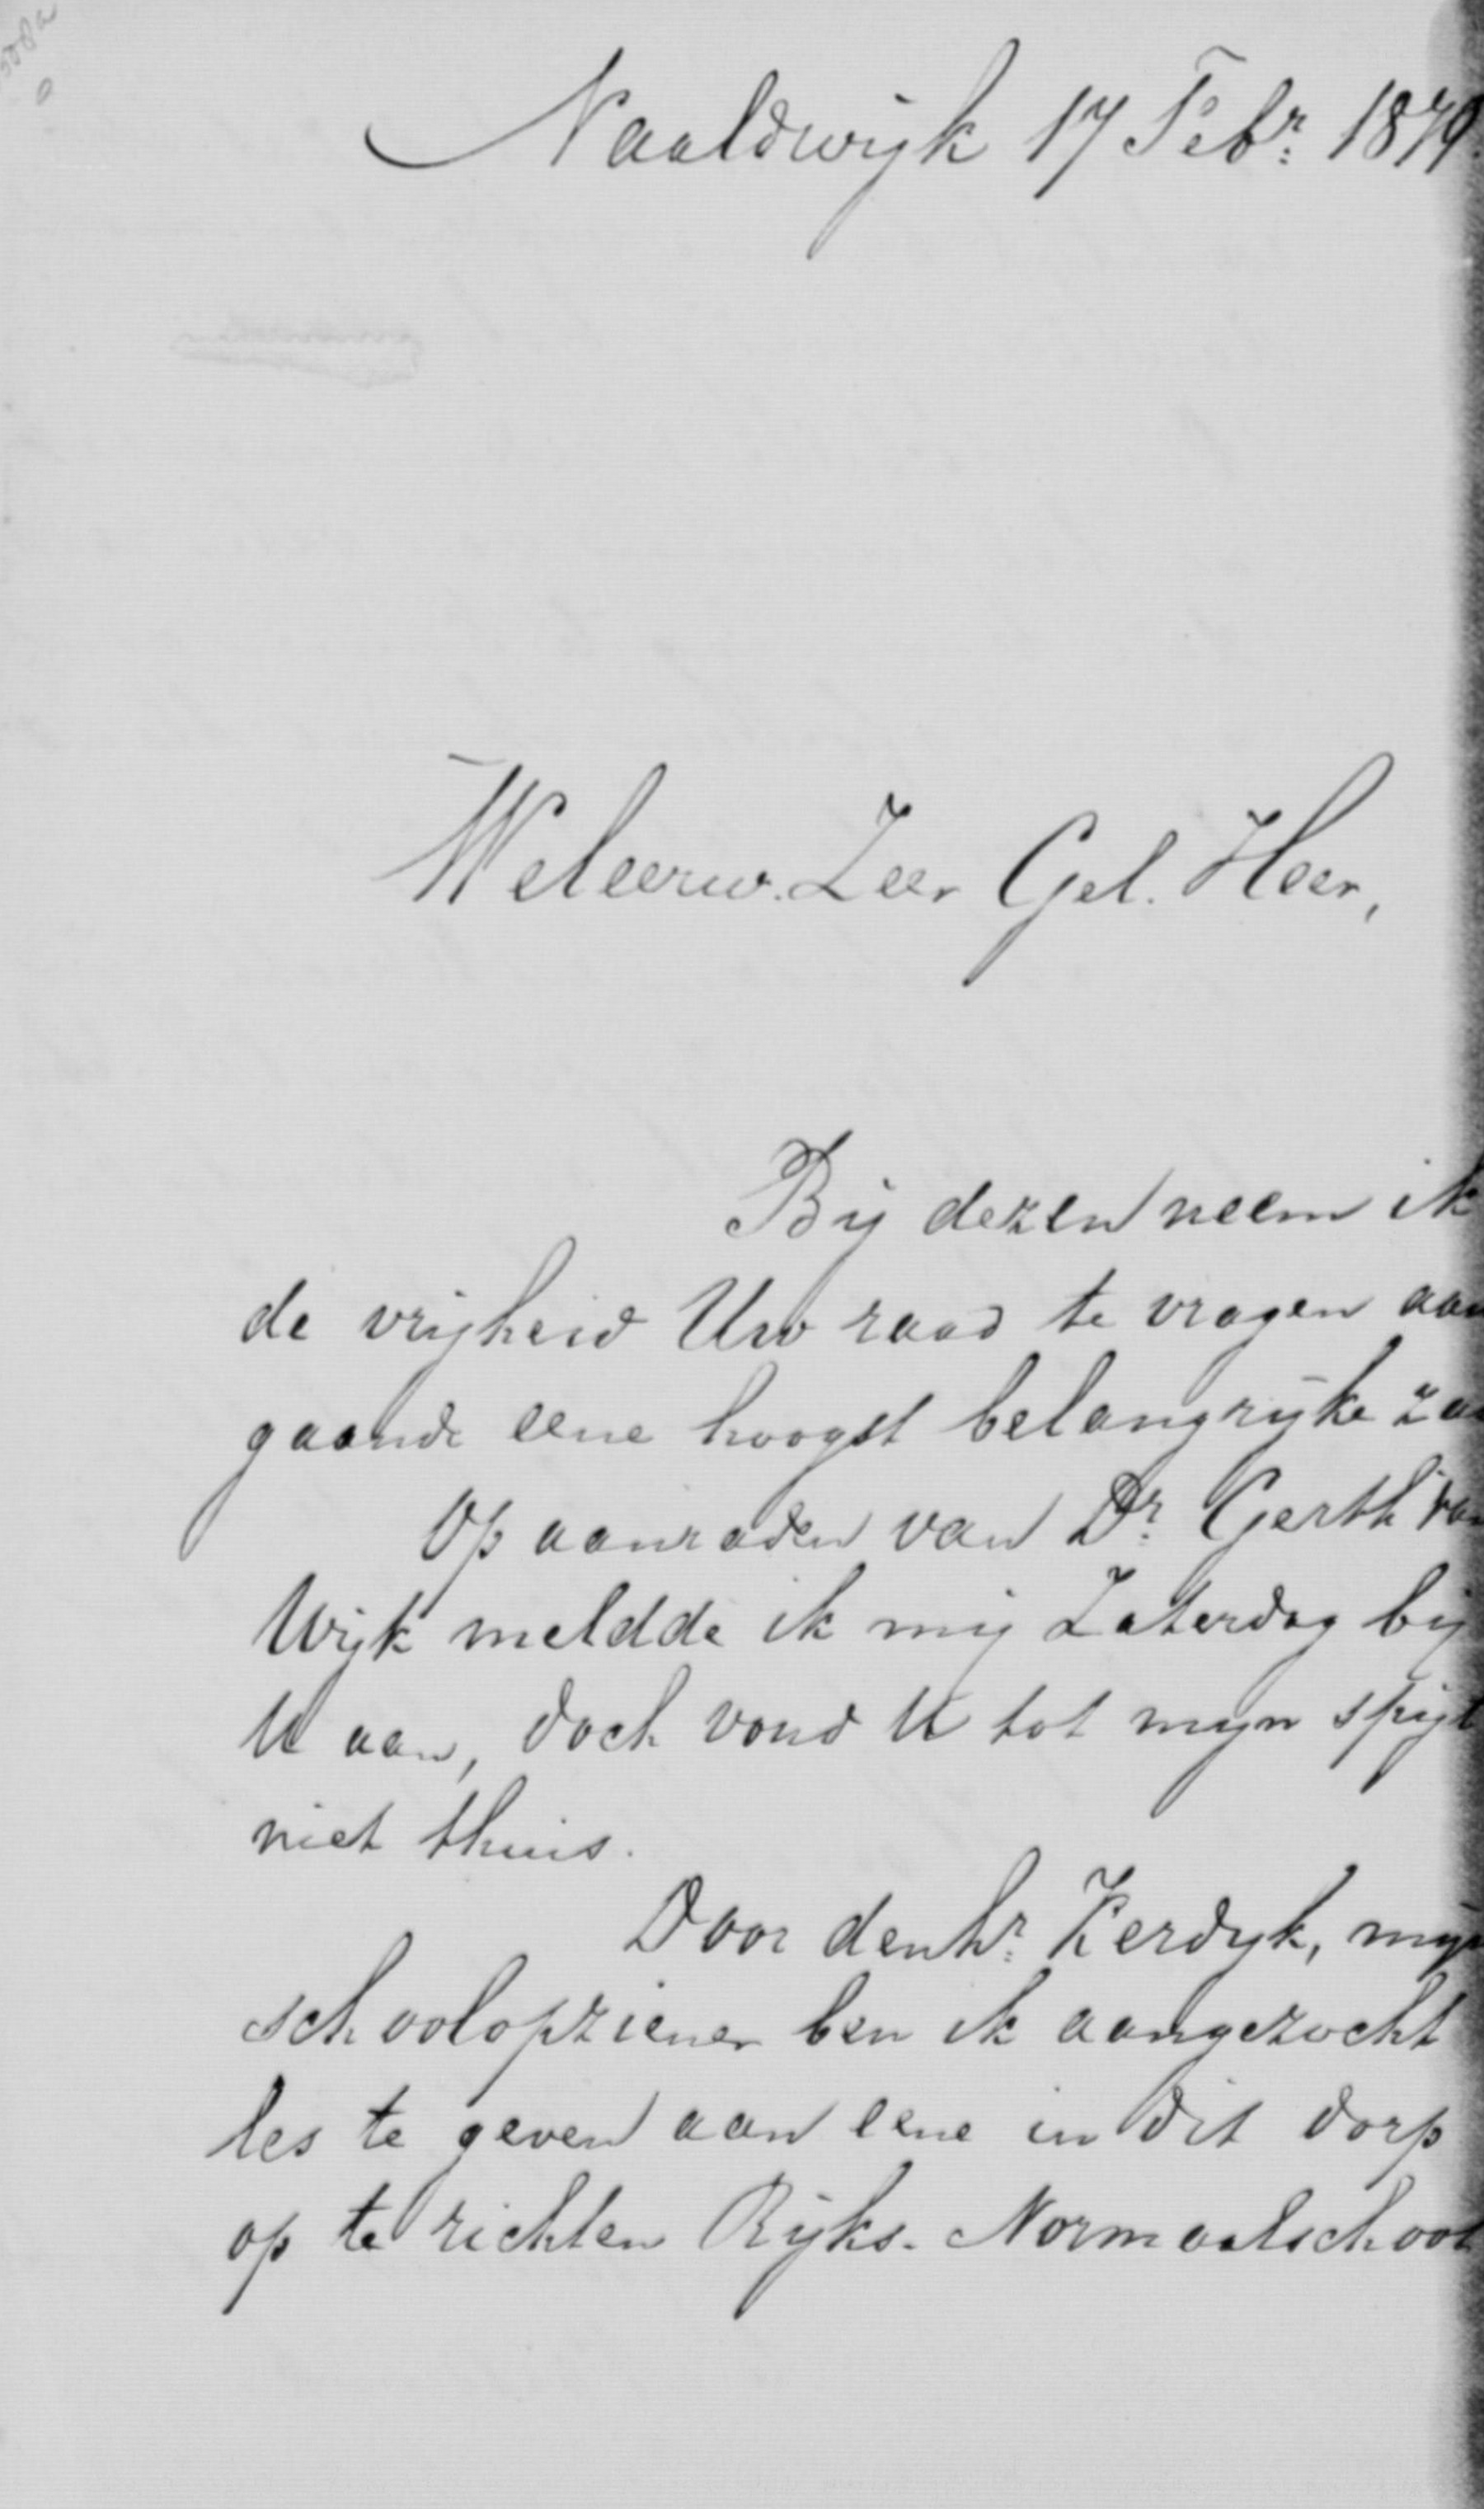 Naaldwijk 17 Febr. 1879
Weleerw. Zeer Gel. Heer,
Bij dezen neem ik
de vrijheid Uw raad te vragen aan
gaande eene hoogst belangrijke
Op aanraden van Dr. Gerth van
Wijk meldde ik mij Zaterdag bij
U aan, doch vond U tot mijn spijt
niet thuis.
Door den hr. Kerdyk, mijn
schoolopziener ben ik aangezocht
les te geven aan eene in dit dorp
op te richten Rijks-Normaalschool